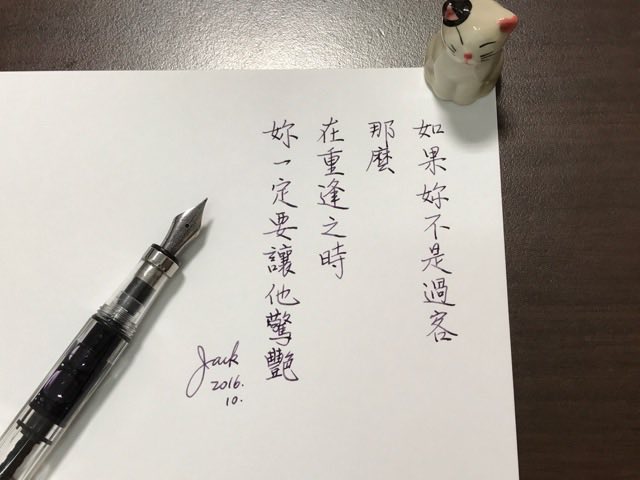 如果妳不是過客
那麼
在重逢之時
妳一定要讓他驚艷
Jack
2016.
10.